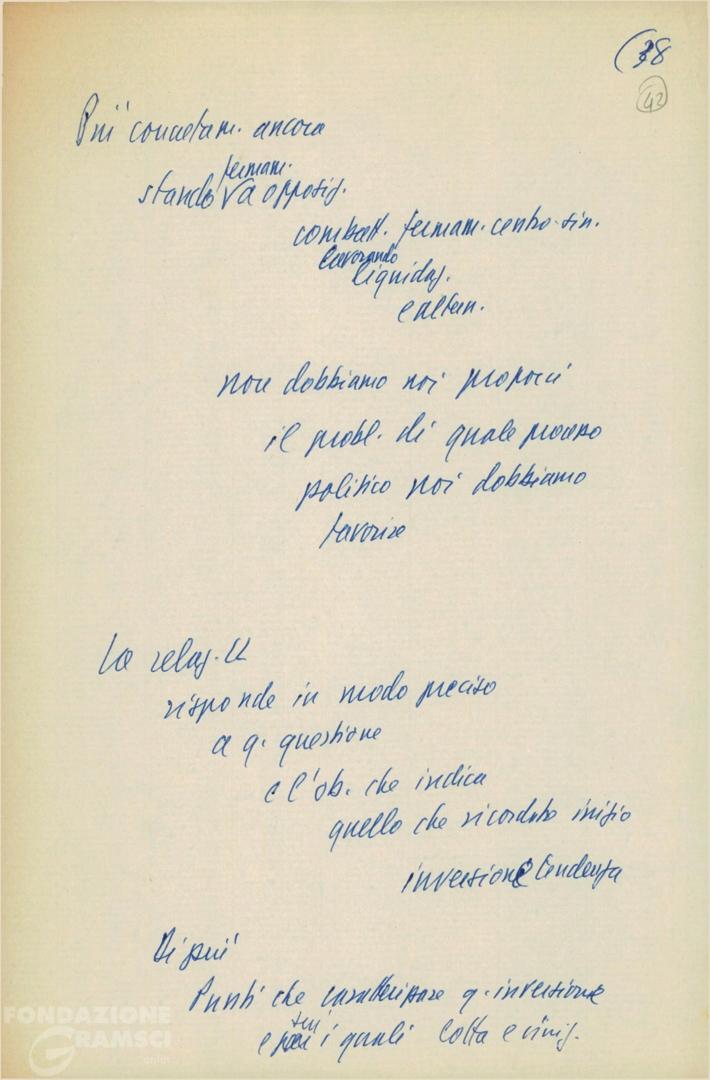 (38
42
Più concretam. ancora
fermam.
stando a opposiz.
combatt. fermam. centro-sin.
lavorando
liquidaz.
e altern.
non dobbiamo noi proporci
il probl. di quale processo
politico noi dobbiamo
favorire
La relaz. LL
risponde in modo preciso
a q. questione
e l'ob. che indica
quello che ricordato inizio
inversione tendenza
Di più
Punti che caratterizzare q. inversione
su
e i quali lotta e iniz.
FONDAZIONE
GRAMSCI
onlus